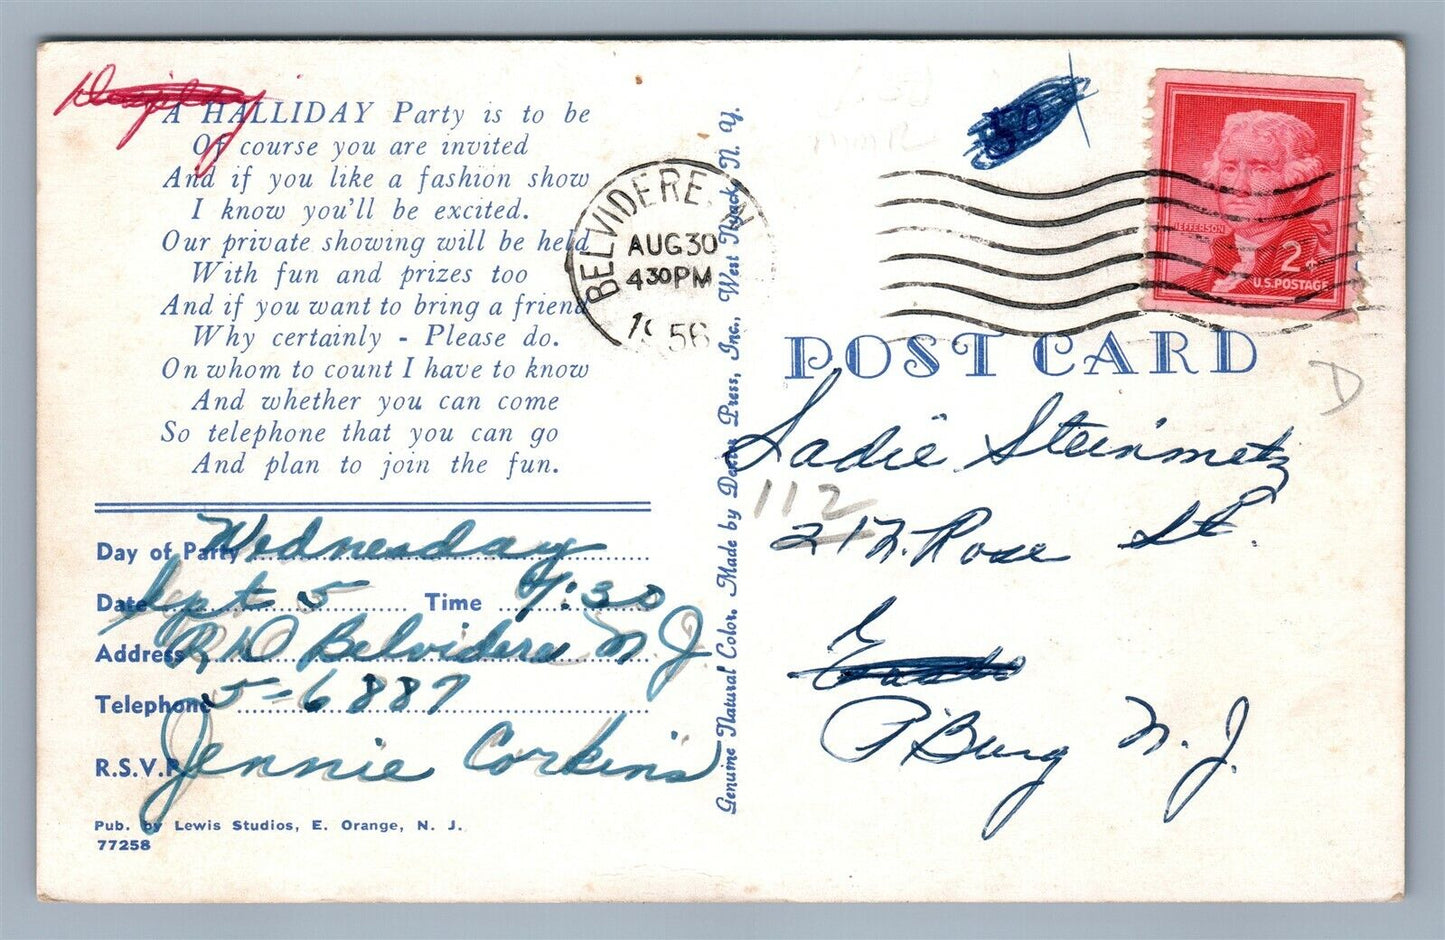 A HALLIDAY Party is to be
Of course you are invited
And if you like a fashion show
I know you'll be excited.
Our private showing will be held
With fun and prizes too
And if you want to bring a friend
Why certainly - Please do.
On whom to count I have to know
And whether you can come
So telephone that you can go
And plan to join the fun.
Day of Party Wednesday
Date Sept 5 Time 7:30
Address R, D Belvidere N J
Telephone 5-6887
R.S.V.P. Jennie Corkins
Pub. by Lewis Studios, E. Orange, N. J.
77258
Genuine Natural Color. Made by Dexter Press, Inc., West Nyack, N. Y.
BELVIDERE, N
AUG 30
4 30 PM
1956
JEFFERSON
2¢
U.S. POSTAGE
POST CARD
D
Sadie Steinmetz
112
212 Rose St.
P'Burg N. J.